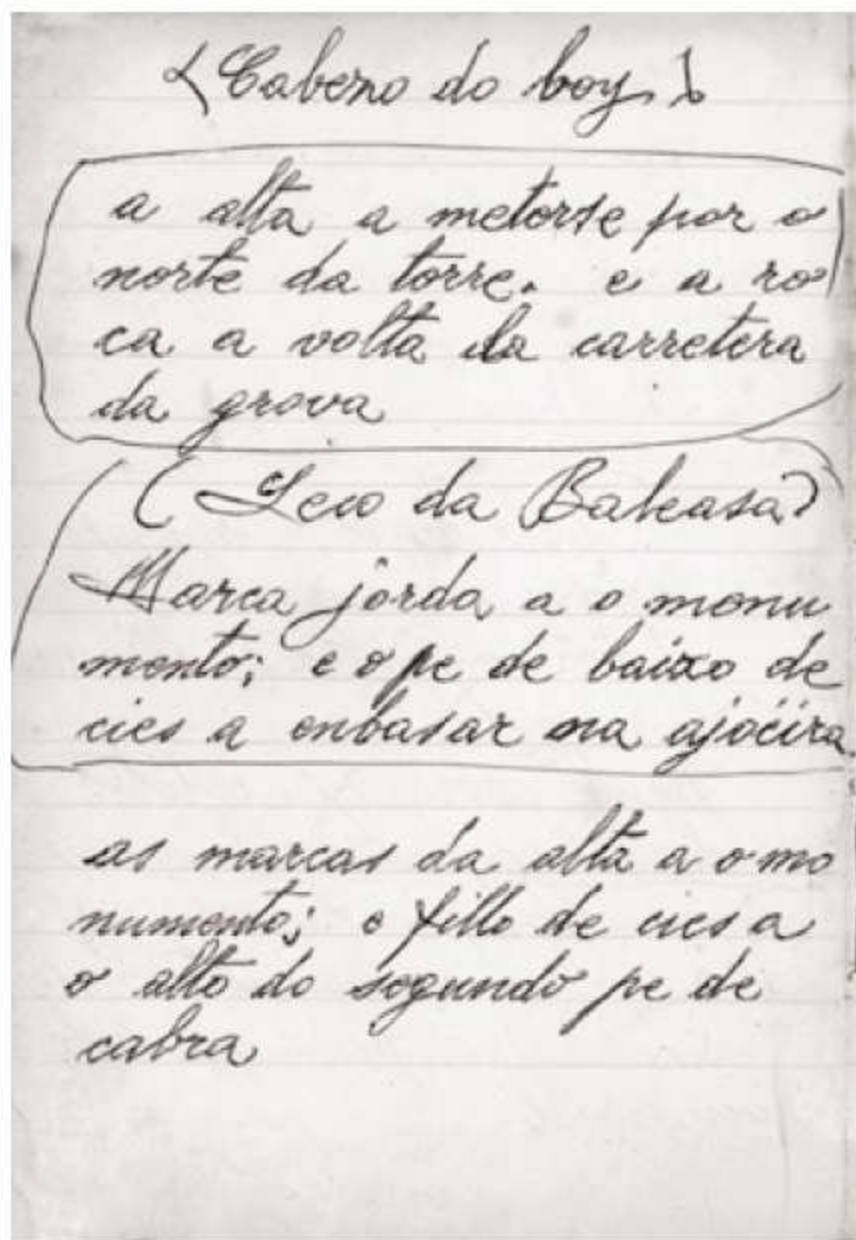 (Cabezo do boy)
a alta a metorse por o
norte da torre. e a ro
ca a volta da carretera
da grova
(Seco da Baleasa)
Marca jorda a o monu
mento; e o pe de baixo de
cies a enbasar na ajoeira.
as marcas da alta a o mo
numento; o fillo de cies a
o alto do segundo pe de
cabra